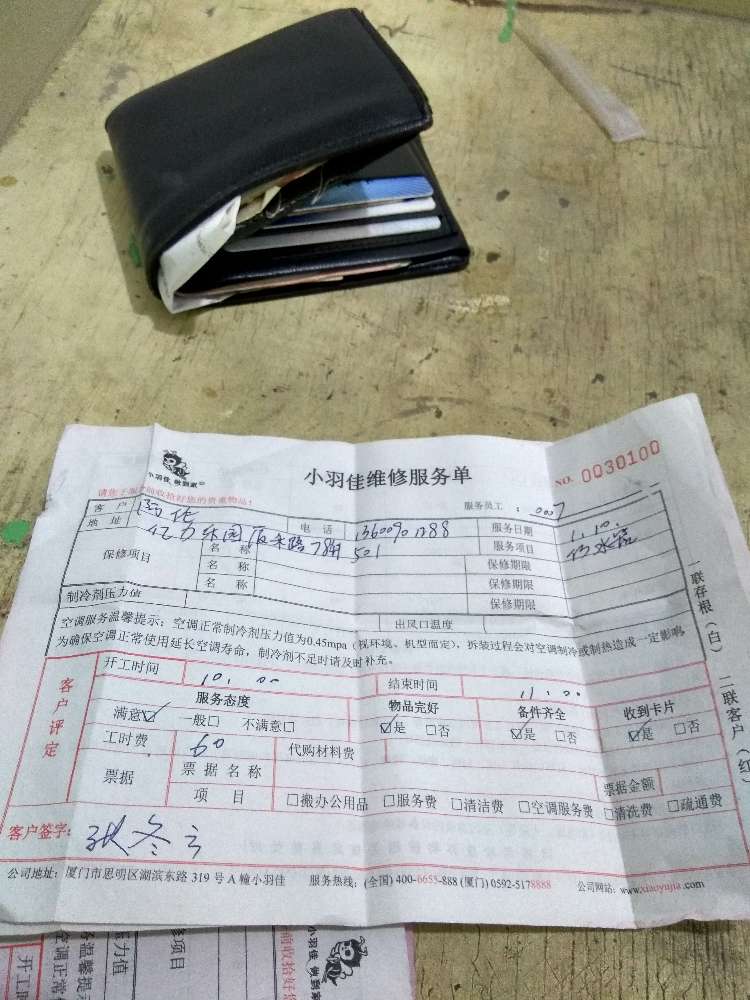 小羽佳 做到家
小羽佳维修服务单
NO. 0030100
请您于服务前收拾好您的贵重物品！
服务员工：0007
客户 电话 13600901288 服务日期 1.10.
地址 亿力乐园 78# 501 服务项目
保修项目 名称 保修期限
名称 保修期限
名称 保修期限
制冷剂压力值 出风口温度
空调服务温馨提示：空调正常制冷剂压力值为0.45mpa（视环境、机型而定），拆装过程会对空调制冷或制热造成一定影响
为确保空调正常使用延长空调寿命，制冷剂不足时请及时补充。
客户评定
开工时间 10.00 结束时间 11.00
服务态度 物品完好 备件齐全 收到卡片
满意☑ 一般□ 不满意□ ☑是 □否 ☑是 □否 ☑是 □否
工时费 60 代购材料费
票据 票据名称 票据金额
项目 □搬办公用品 □服务费 □清洁费 □空调服务费 □清洗费 □疏通费
客户签字：
公司地址：厦门市思明区湖滨东路 319 号 A 幢小羽佳 服务热线：(全国) 400-6655-888 (厦门) 0592-5178888 公司网站：www.xiaoyujia.com
一联存根（白） 二联客户（红
小羽佳 做到家
保修项目
开工时